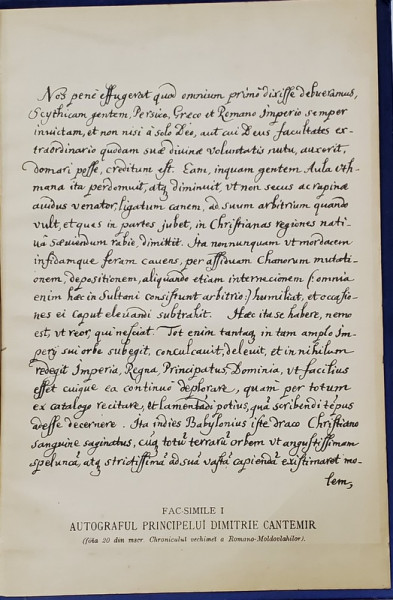 Nos penè effugerat quod omnium primò dixisse debueramus,
Scythicam gentem, Persico, Græco et Romano Imperio semper
invictam, et non nisi à solo Deo, aut cui Deus facultates ex-
traordinario quodam suæ divinæ voluntatis nutu, auxerit,
domari posse, creditum est. Eam, inquam gentem, Aula Oth-
mana ita perdomuit, atq diminuit, vt non secus ac rapinæ
avidus venator, ligatum canem, ad suum arbitrium quando
vult, et ques in partes jubet, in Christianas regiones nati-
uâ sæuiendum rabie, dimittit. Ita nonnunquam vt mordacem
infidamque feram cauens, per assiduam Chanorum mutati-
onem, depositionem, aliquando etiam internecionem (: omnia
enim hæc in Sultani consistunt arbitrio :) humiliat, et occasio-
nes ei caput eleuandi subtrahit. Hæc ita se habere, nemo
est, vt reor, qui nesciat. Tot enim tantaq in tam amplo Im-
perij sui orbe subegit, conculcauit, deleuit, et in nihilum
redegit Imperia, Regna, Principatus, Dominia, vt facilius
esset cuique ea continuò deplorare, quam per totum
ex catalogo recitare, et lamentādi potius, quā scribendi tēpus
adesse decernere. Ita indies Babylonius iste draco Christiano
sanguine saginatus, cūq totū terrarū orbem vt angustissimam
speluncā, atq strictissimā ad suā vastā capiendā existimaret mo-
lem,
FAC-SIMILE I
AUTOGRAFUL PRINCIPELUĬ DIMITRIE CANTEMIR
(fóia 20 din mscr. Chroniculuĭ vechimeĭ a Romano-Moldovlahilor).